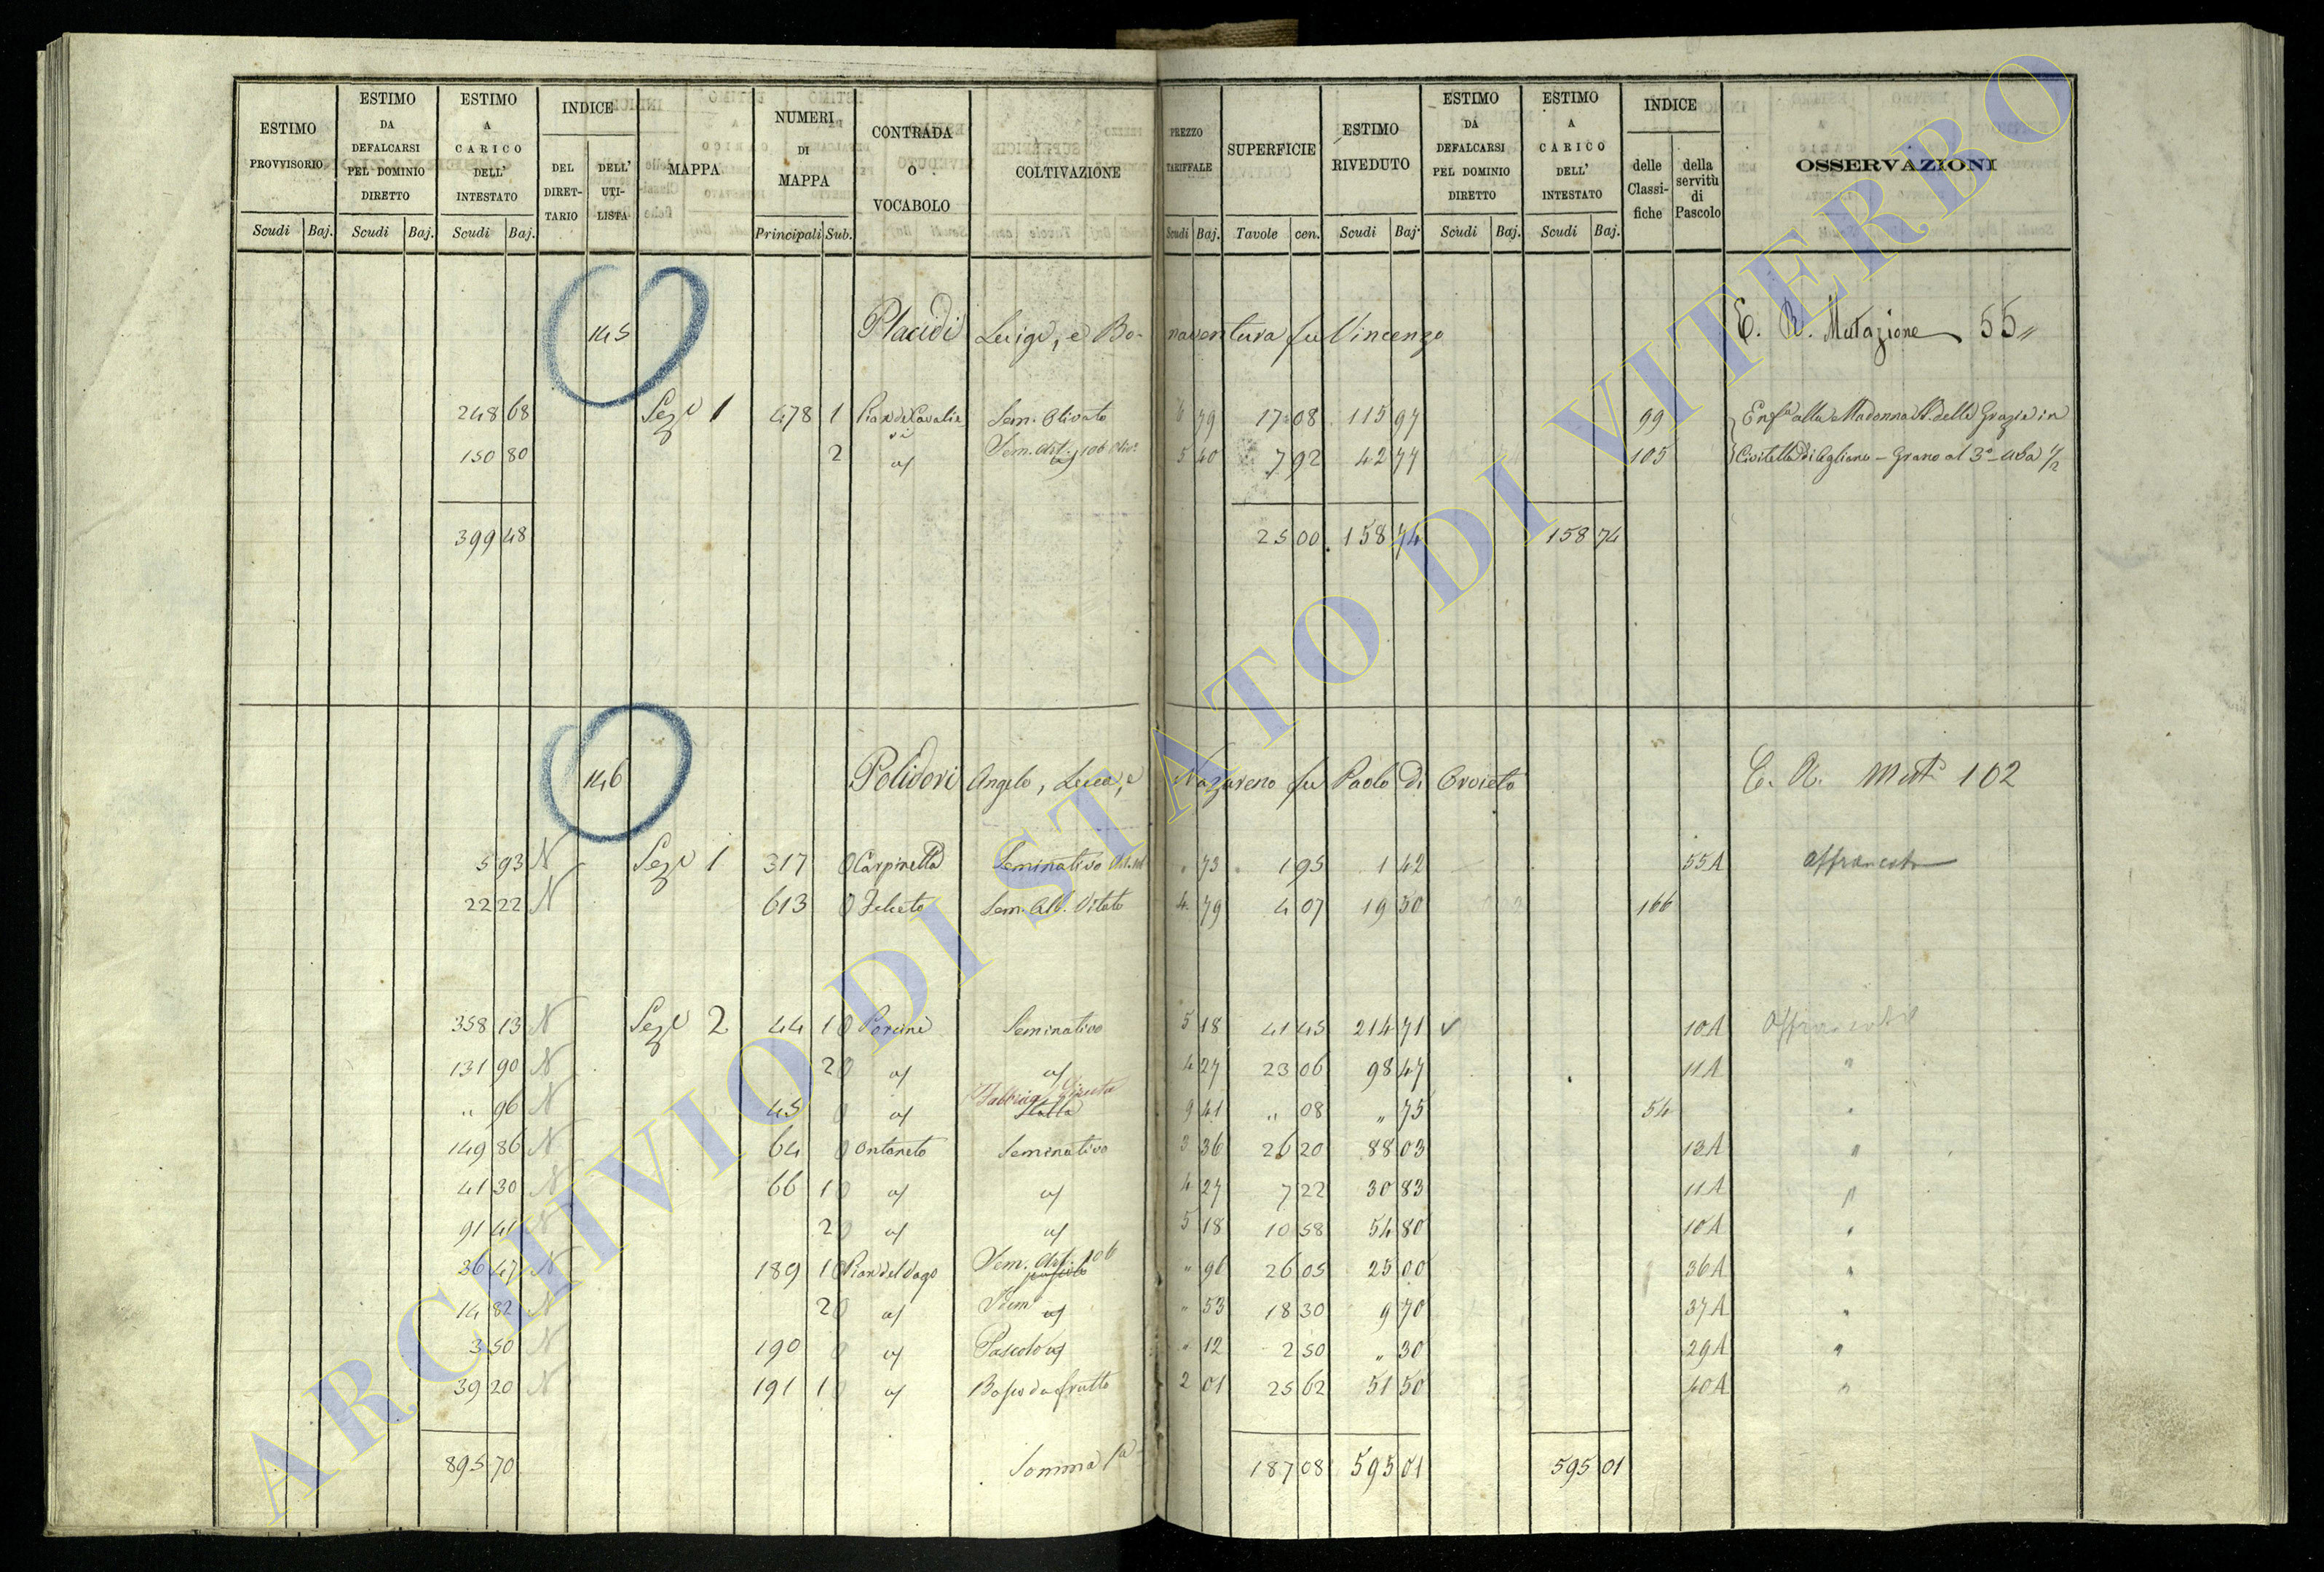 ESTIMO PROVVISORIO | ESTIMO DA DEFALCARSI PEL DOMINIO DIRETTO | ESTIMO A CARICO DELL' INTESTATO | INDICE DEL DIRET-TARIO | DELL' UTI-LISTA | MAPPA | NUMERI DI MAPPA | CONTRADA O VOCABOLO | COLTIVAZIONE | PREZZO TARIFFALE | SUPERFICIE | ESTIMO RIVEDUTO | ESTIMO DA DEFALCARSI PEL DOMINIO DIRETTO | ESTIMO A CARICO DELL' INTESTATO | INDICE delle Classi-fiche | della servitù di Pascolo | OSSERVAZIONI
Scudi Baj. Scudi Baj. Scudi Baj. Principali Sub. Scudi Baj. Tavole cen. Scudi Baj. Scudi Baj. Scudi Baj.
145 Placidi Luigi, e Bonaventura fu Vincenzo E. R. Mutazione 55
248 68 Seze 1 478 1 Pian de Cavalieri Sem. Olivato 6 79 17 08 115 97 99 Enfa alla Madonna SS. delle Grazie in
150 80 2 5 40 7 92 42 77 105 Civitella d'Agliano - Grano al 3°
399 48 25 00 158 74 158 74
146 Polidori Angelo, Luca, e Nazareno fu Paolo di Orvieto E. R. Mut 102
5 93 N Seze 1 317 0 Carpinetta Seminativo " 73 1 95 1 42 55A affrancato
22 22 N 613 0 Felceto Sem. Alb. Vitato 4 79 4 07 19 50 166
358 13 N Seze 2 44 1 0 Porcini Seminativo 5 18 41 45 214 71 10A Affrancato
131 90 N 2 0 4 27 23 06 98 47 11A "
" 96 N 45 0 Stalla 9 41 " 08 " 75 54 "
149 86 N 64 0 Ontaneto Seminativo 3 36 26 20 88 03 13A "
41 30 N 66 1 0 4 27 7 22 30 83 11A "
91 41 N 2 0 5 18 10 58 54 80 10A "
36 47 N 189 1 0 Pian del Vago Sem. " 96 26 05 25 00 36A "
14 82 N 2 0 Idem " 53 18 30 9 70 37A "
3 50 N 190 0 Pascolo " 12 2 50 " 30 29A "
39 20 N 191 1 0 Bosco da frutto 2 01 25 62 51 50 40A "
895 70 Somma 187 08 595 01 595 01
ARCHIVIO DI STATO DI VITERBO